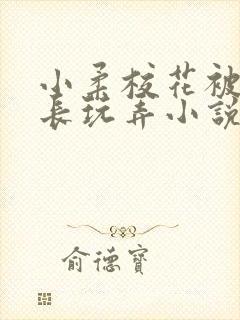 小柔校花被
长玩弄小說
俞德寶